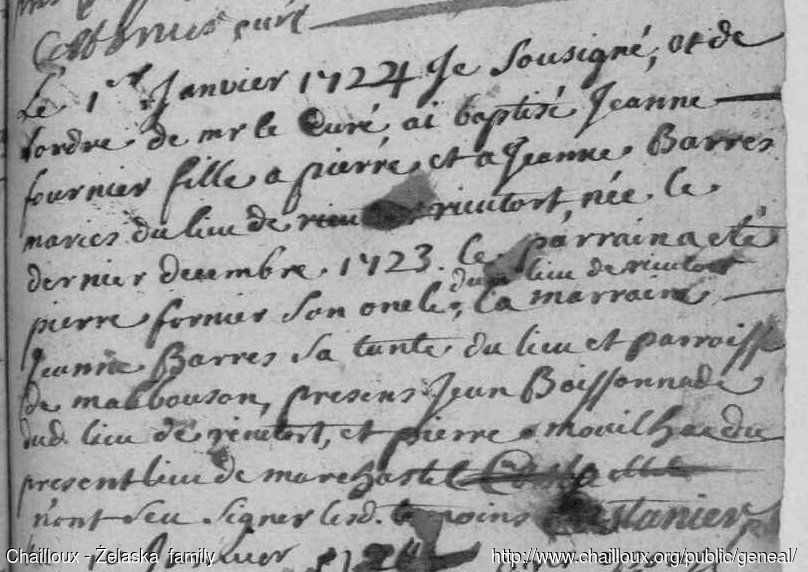 curé
Le 1er Janvier 1724 Je Sousigné, et de
lordre de mr le Curé ai baptisé Jeanne
fournier fille a pierre et a Jeanne Barres
maries du lieu de rieutort, née le
dernier decembre 1723. le parrain a eté
dud. lieu de rieutort
pierre fornier son oncle, la marraine
Jeanne Barres sa tante du lieu et parroisse
de malbouson, presens Jean Boissonnade
dud. lieu de rieutort, et pierre mouilhac du
present lieu de marchastel
n'ont seu signer lesd. temoins
Chailloux - Żelaska family
http://www.chailloux.org/public/geneal/